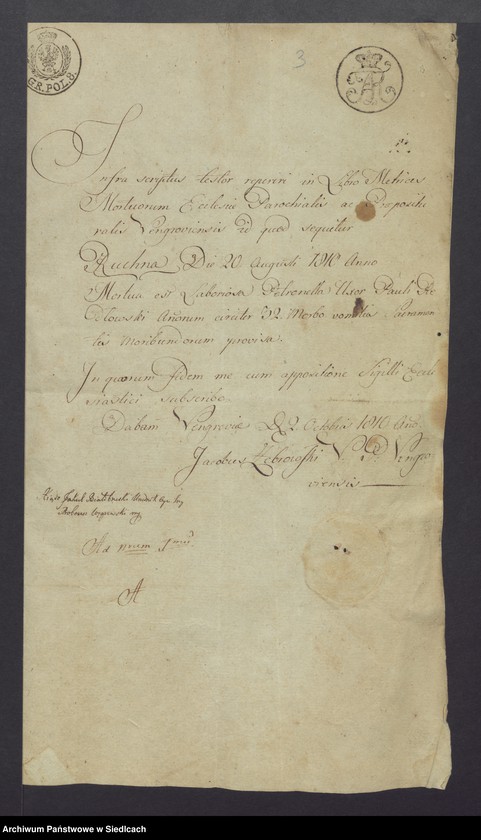 GR. POL 8.
3
Infra scriptus testor reperiri in Libro Metrices
Mortuorum Ecclesie Parochialis ac Prepositu
ralis Vengroviensis id quod sequitur
Ruchna Die 20 Augusti 1810 Anno
Mortua est Laboriosa Petronella Uxor Pauli
Anorum circiter 32. Morbo vomitus Sacramen
tis Moribundorum provisa.
In quorum fidem me cum appositione Sigilli Eccle
siastici subscribo
Dabam Vengrovie D. 2 Octobris 1810 Ano
Jacobus Zebrowski V. P. Vengro
viensis
Ad num
A
Archiwum Państwowe w Siedlcach